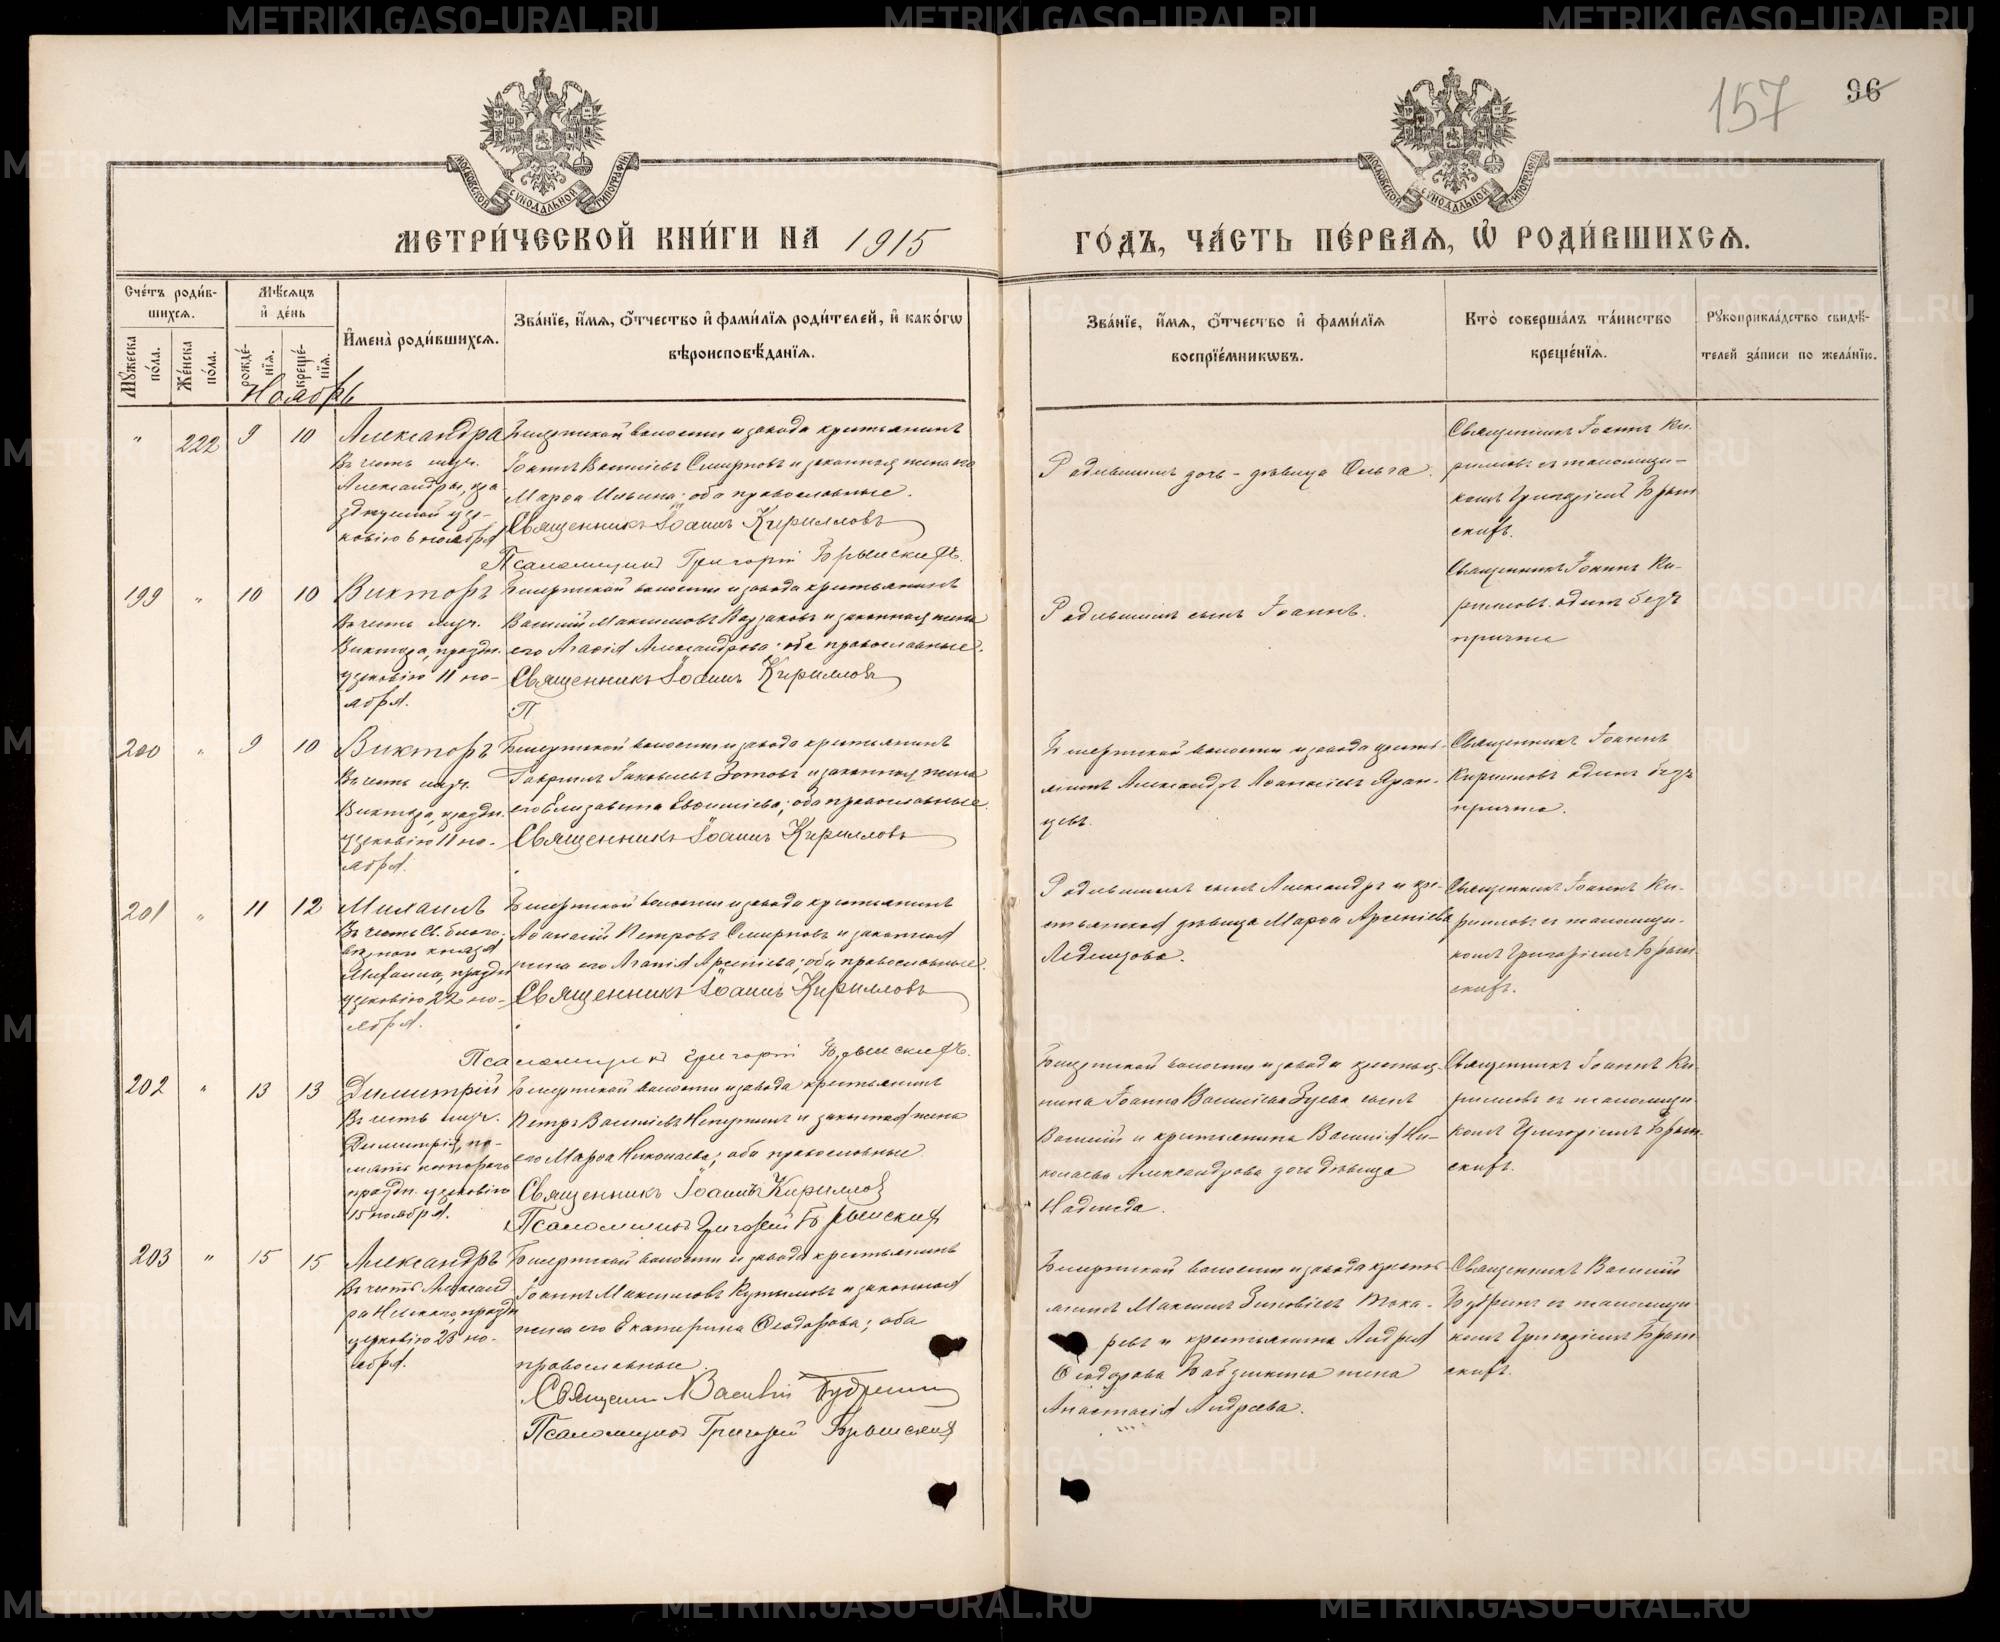 157
96
МОСКОВСКОЙ СѴНОДАЛЬНОЙ ТИПОГРАФІИ
МОСКОВСКОЙ СѴНОДАЛЬНОЙ ТИПОГРАФІИ
МЕТРИ́ЧЕСКОЙ КНИ́ГИ НА 1915 ГО́ДЪ, ЧА́СТЬ ПЕ́РВАѦ, Ѽ РОДИ́ВШИХСѦ.
Сче́тъ роди́в-
шихсѧ.
Мꙋ́жеска по́ла.
Же́нска по́ла.
Мѣ́сѧцъ
и҆ де́нь
рожде́нїѧ.
креще́нїѧ.
И҆мена̀ роди́вшихсѧ.
Зва́нїе, и҆́мѧ, ѻ҆́тчество и҆ фами́лїѧ роди́телей, и҆ како́гѡ
вѣроисповѣ́данїѧ.
Зва́нїе, и҆́мѧ, ѻ҆́тчество и҆ фами́лїѧ
воспрїе́мникѡвъ.
Кто̀ соверша́лъ та́инство
креще́нїѧ.
Рꙋкоприкла́дство свидѣ́-
телей за́писи по жела́нїю.
Ноябрь
" 222 9 10
Александра
Въ честь муч.
Александры, пра-
здкуемой цер-
ковію 6 ноября
Бисертской волости и завода крестьянинъ
Іоаннъ Васильевъ Смирновъ и законная жена его
Марѳа Ильина; оба православные.
Священникъ Іоаннъ Кирилловъ
Псаломщикъ Григорій Брынскихъ.
Родившимъ дочь – дѣвица Ольга.
Священникъ Іоаннъ Ки-
рилловъ съ псаломщи-
комъ Григоріемъ Брын-
скихъ.
199 " 10 10
Викторъ
Въ честь муч.
Виктора, праздн.
церковію 11 но-
ября.
Бисертской волости и завода крестьянинъ
Василій Максимовъ Казаковъ и законная жена
его Агаѳія Александрова; оба православные.
Священникъ Іоаннъ Кирилловъ
П
Родившимъ сынъ Іоаннъ.
Священникъ Іоаннъ Ки-
рилловъ одинъ безъ
причта
200 " 9 10
Викторъ
Въ честь муч.
Виктора, праздн.
церковію 11 но-
ября.
Бисертской волости и завода крестьянинъ
Гавріилъ Іаковлевъ Зотовъ и законная жена
его Елизавета Евѳиміева; оба православные.
Священникъ Іоаннъ Кирилловъ
Бисертской волости и завода кресть-
янинъ Александръ Аѳанасіевъ Яран-
цевъ.
Священникъ Іоаннъ
Кирилловъ одинъ безъ
причта.
201 " 11 12
Михаилъ
Въ честь св. благо-
вѣрнаго князя
Михаила, праздн.
церковію 22 но-
ября.
Бисертской волости и завода крестьянинъ
Аѳанасій Петровъ Смирновъ и законная
жена его Агапія Арсеніева; оба православные.
Священникъ Іоаннъ Кирилловъ
Псаломщикъ Григорій Брынскихъ.
Родившимъ сынъ Александръ и кре-
стьянская дѣвица Марѳа Арсеніева
Ледешкова.
Священникъ Іоаннъ Ки-
рилловъ съ псаломщи-
комъ Григоріемъ Брын-
скихъ.
202 " 13 13
Димитрій
Въ честь муч.
Димитрія, па-
мять котораго
праздн. церковію
15 ноября.
Бисертской волости и завода крестьянинъ
Петръ Васильевъ и законная жена
его Марѳа Николаева; оба православные
Священникъ Іоаннъ Кирилловъ
Псаломщикъ Григорій Брынскихъ
Бисертской волости и завода крестья-
нина Іоанна Васильева Зуева сынъ
Василій и крестьянина Василія Ни-
колаева Александрова дочь дѣвица
Надежда.
Священникъ Іоаннъ Ки-
рилловъ съ псаломщи-
комъ Григоріемъ Брын-
скихъ.
203 " 15 15
Александръ
Въ честь Александ-
ра Невскаго, праздн.
церковію 23 но-
ября.
Бисертской волости и завода крестьянинъ
Іоаннъ Максимовъ и законная
жена его Екатерина Ѳеодорова; оба
православные.
Священникъ Василій Будринъ
Псаломщикъ Григорій Брынскихъ
Бисертской волости и завода кресть-
янинъ Максимъ Зиновіевъ Тока-
ревъ и крестьянина Андрея
Ѳеодорова Бабушкина жена
Анастасія Андреева.
Священникъ Василій
Будринъ съ псаломщи-
комъ Григоріемъ Брын-
скихъ.
METRIKI.GASO-URAL.RU